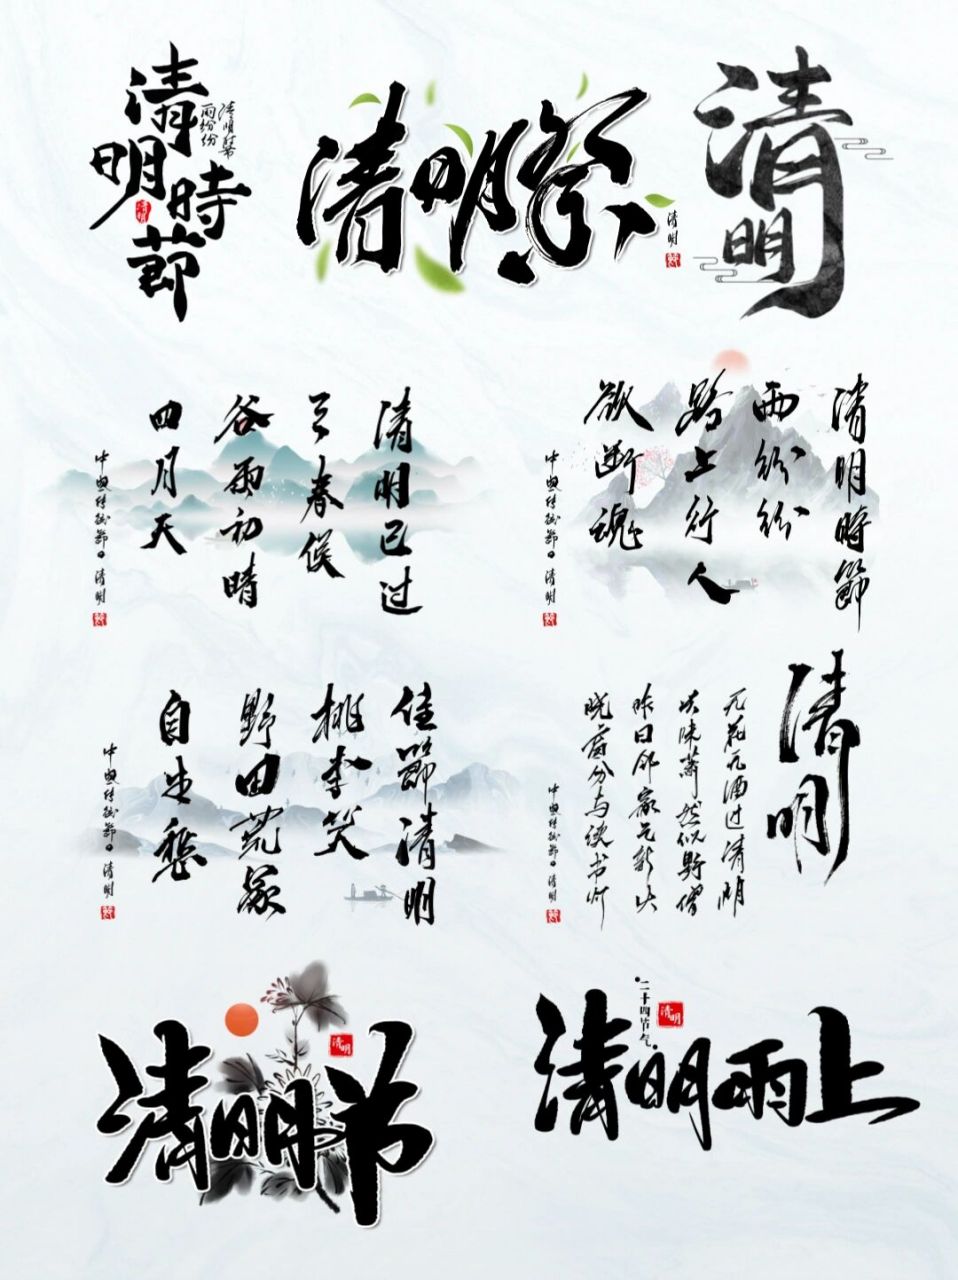 清明時節
清明時節
雨纷纷
清明
清明祭
清明
清明
清明已过
三春候
谷雨初晴
四月天
中国传统节日·清明
清明時節
雨纷纷
路上行人
欲断魂
中国传统节日·清明
佳節清明
桃李笑
野田荒冢
自生愁
中国传统节日·清明
清明
无花无酒过清明
兴味萧然似野僧
昨日邻家乞新火
晓窗分与读书灯
中国传统节日·清明
清明节
清明
二十四节气
清明
清明雨上